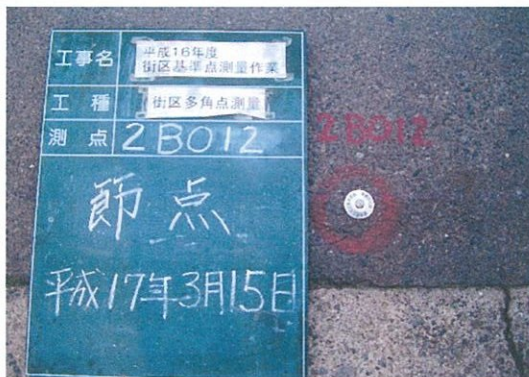 工事名
平成16年度
街区基準点測量作業
工種
街区多角点測量
測点
2B012
節点
平成17年3月15日
2B012